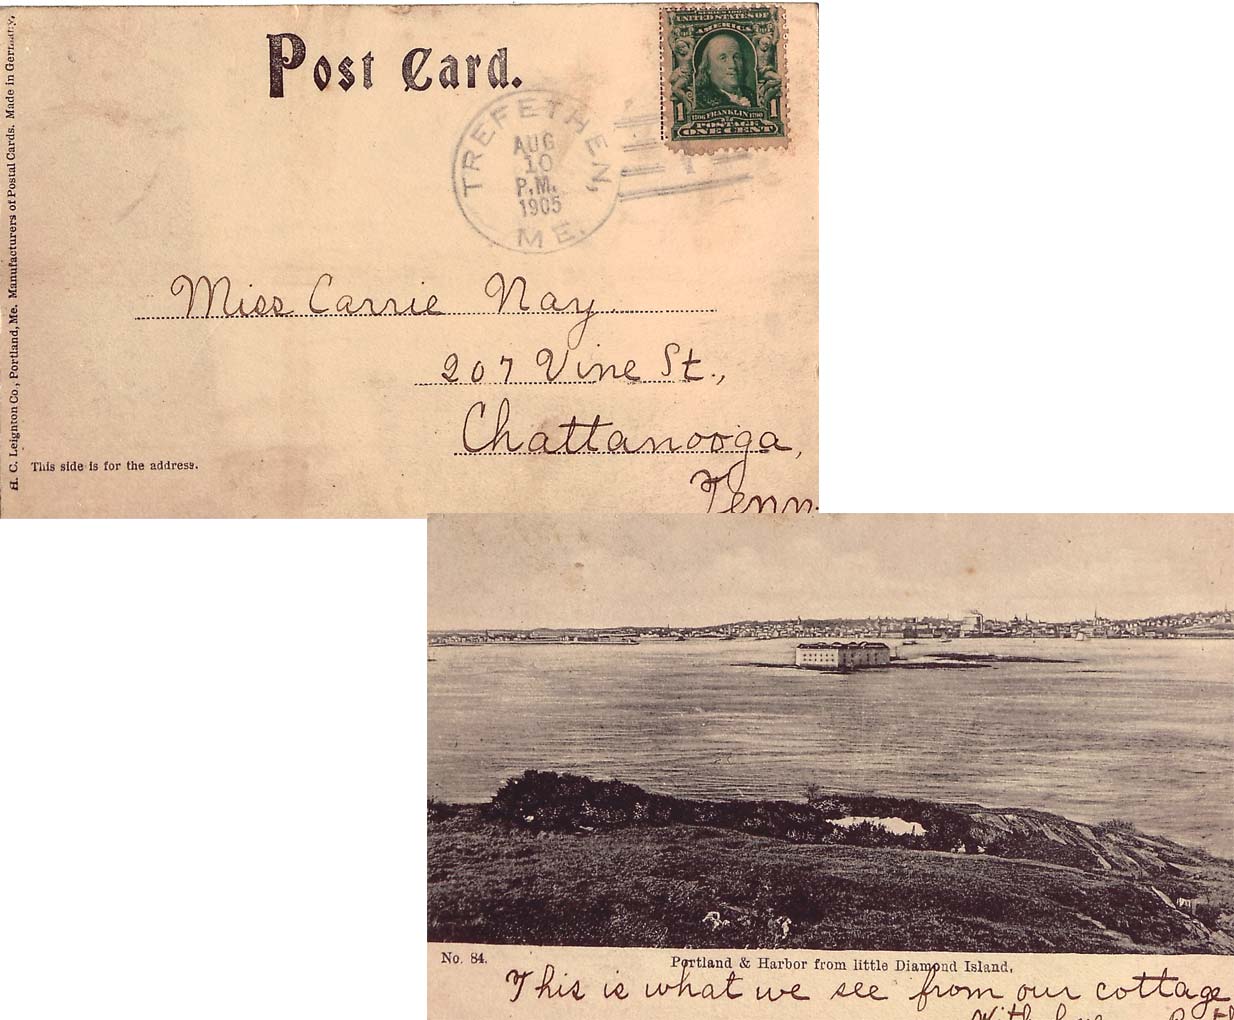 Post Card.
UNITED STATES OF
AMERICA
1 1
1706 FRANKLIN 1790
POSTAGE
ONE CENT
TREFETHEN,
AUG
10
P.M.
1905
ME.
Miss Carrie Nay
207 Vine St.,
Chattanooga,
Tenn.
This side is for the address.
H. C. Leighton Co., Portland, Me. Manufacturers of Postal Cards. Made in Germany.
No. 84. Portland & Harbor from little Diamond Island,
This is what we see from our cottage
With